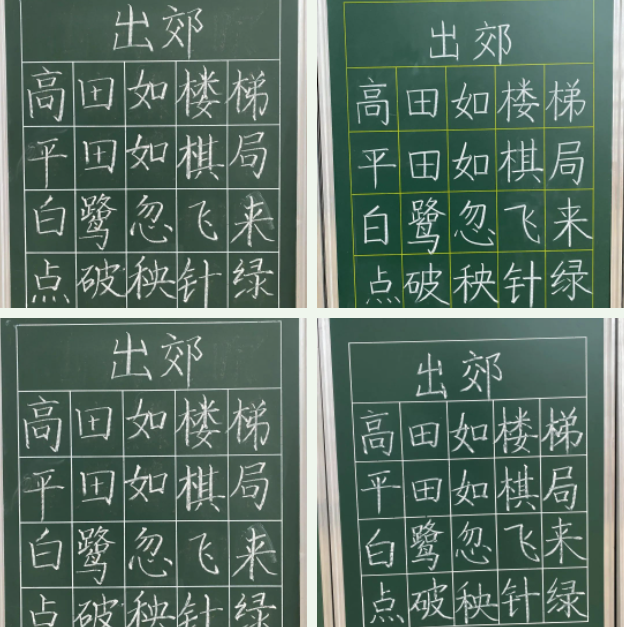 出郊
高田如楼梯
平田如棋局
白鹭忽飞来
点破秧针绿
出郊
高田如楼梯
平田如棋局
白鹭忽飞来
点破秧针绿
出郊
高田如楼梯
平田如棋局
白鹭忽飞来
点破秧针绿
出郊
高田如楼梯
平田如棋局
白鹭忽飞来
点破秧针绿